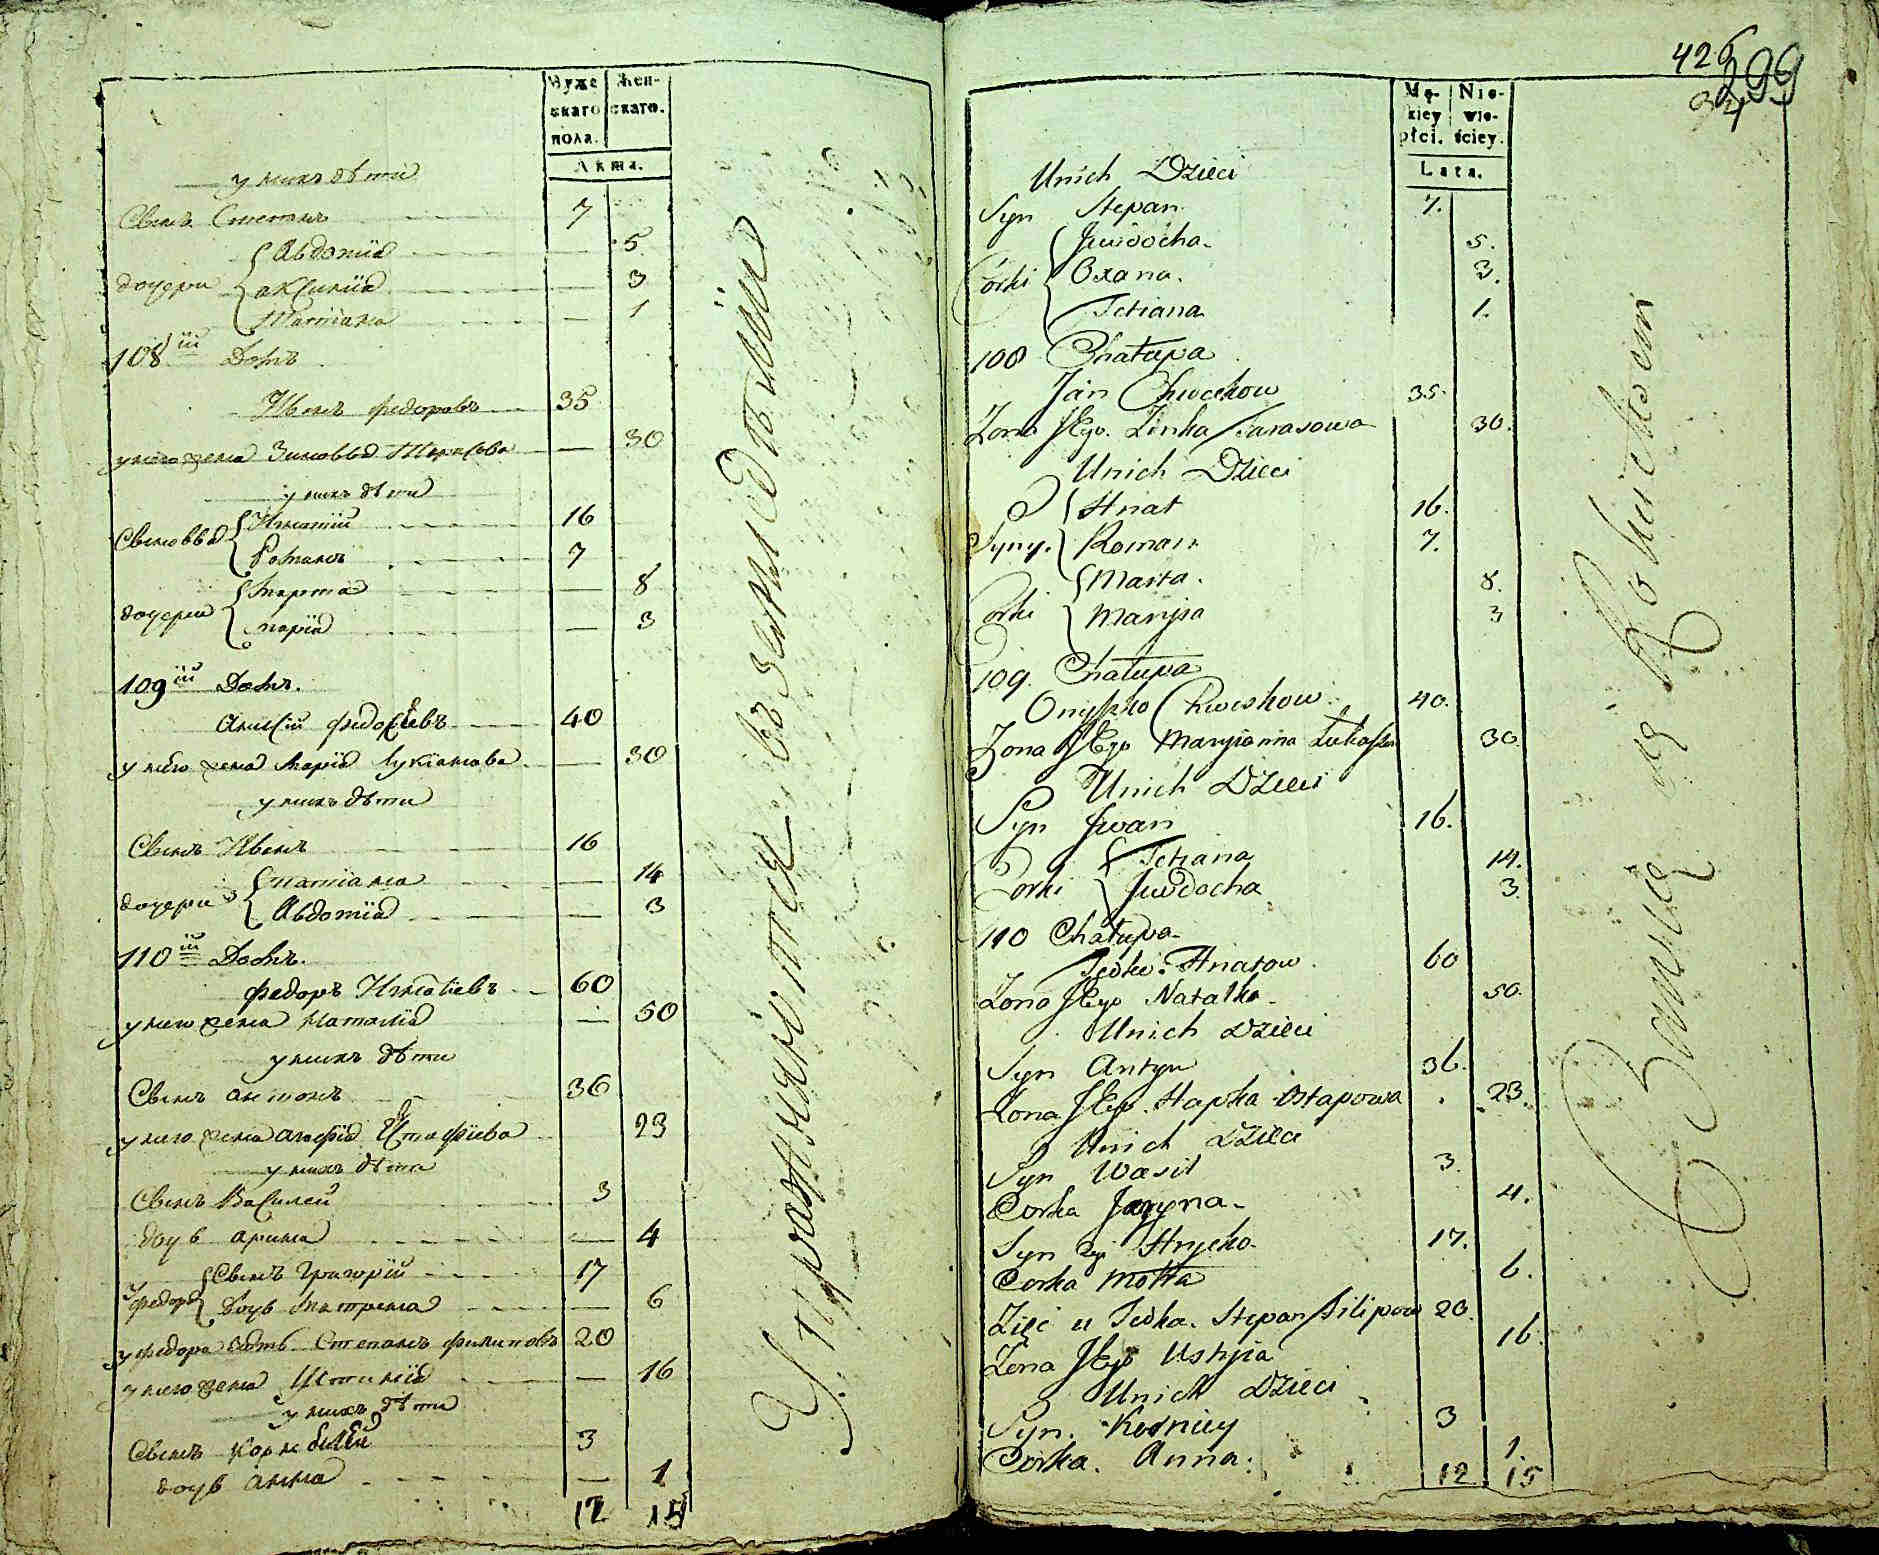 Муже Жен-
скаго скаго.
пола.
Лѣта.
у нихъ дѣти
Сынъ Степанъ 7
Авдотія 5
дочери Аксинія 3
Татіана 1
108ій Домъ
Иванъ Федоровъ 35
у него жена Зиновья Тарасова 30
у нихъ дѣти
Игнатій 16
Сыновья
Романъ 7
Марта 8
дочери
Марія 3
109ій Домъ.
Анисій Федосѣевъ 40
у него жена Марія Лукіанова 30
у нихъ дѣти
Сынъ Иванъ 16
Татіана 14
дочери
Авдотія 3
110ій Домъ.
Федоръ Игнатіевъ 60
у него жена Наталія 50
у нихъ дѣти
Сынъ Антонъ 36
у него жена Агафія 23
у нихъ дѣти
Сынъ Василей 3
дочь Арина 4
Сынъ Григорій 17
у Федора
дочь Матрена 6
у Федора зять Степанъ Филиповъ 20
у него жена Устинія 16
у нихъ дѣти
Сынъ Корнѣй 3
дочь Анна 1
12 15
Упражняются въ земледѣліи
426
299
34
Mę- Nie-
zkiey wie-
płci. ściey.
Lata.
Unich Dzieci
Syn Stepan 7.
Juwdocha 5.
Corki Oxana. 3.
Tetiana 1.
108 Chałupa
Jan Chweckow 35.
Zona Jego Zinka Tarasowa 30.
Unich Dzieci
Hnat 16.
Syny. Roman 7.
Marta. 8.
Corki
Maryia 3
109. Chałupa
Onysko Chweskow 40.
Zona Jego Maryianna 30.
Unich Dzieci
Syn Jwan 16.
Tetiana 14.
Corki
Juwdocha 3.
110 Chałupa
Fedko Hnatow 60
Zona Jego Natalka 50.
Unich Dzieci
Syn Antyn 36.
Zona Jego Hapka Ostapowa 23.
Unich Dzieci
Syn Wasil 3.
Corka Jaryna 4.
Syn Hrycko 17.
Corka Motra 6.
Zięć u Fedka. Stepan Filipow 20.
Zona Jego Ustyia 16.
Unich Dzieci
Syn. Korniey 3
Corka. Anna. 1.
12 15
Bawią się Rolnictwem